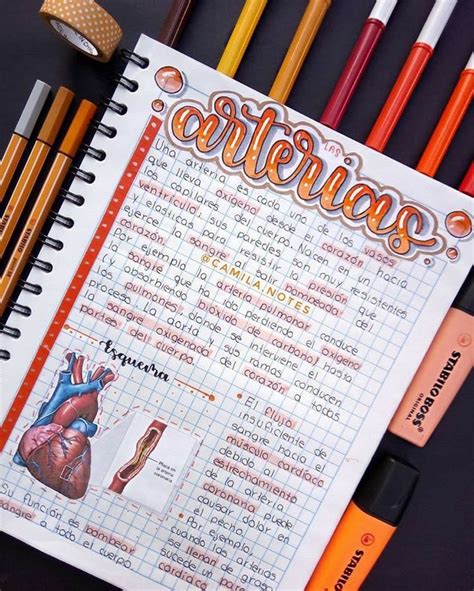 LAS
arterias
Una arteria es cada uno de los vasos
que lleva oxígeno desde el corazón hacia
los capilares del cuerpo. Nacen en un
ventrículo; sus paredes son muy resistentes
y elásticas para resistir la presión que
ejerce la sangre al salir bombeada del
corazón.
Por ejemplo la arteria pulmonar conduce
la sangre que ha ido perdiendo el oxígeno
(y absorbiendo bióxido de carbono) hasta
los pulmones, donde se interviene el
proceso. La aorta y sus ramas conducen
la sangre oxigenada del corazón a todas
partes del cuerpo.
@CAMILA.NOTES
Esquema
Placa en
la arteria
coronaria
• El flujo
insuficiente de
sangre hacia el
músculo cardíaco
debido al
estrechamiento
de la arteria
coronaria puede
causar dolor en
el pecho.
• Por ejemplo,
cuando las arterias
se llenan de grasa
sucede un paro
cardíaco
Su función es bombear
sangre a todo el cuerpo.
STABILO BOSS
ORIGINAL
STABILO BOSS